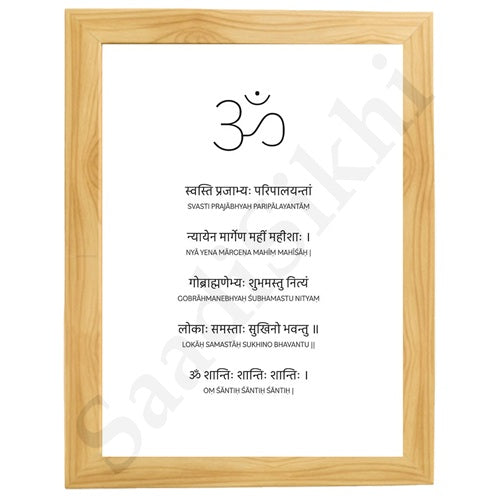 ॐ
स्वस्ति प्रजाभ्यः परिपालयन्तां
SVASTI PRAJĀBHYAḤ PARIPĀLAYANTĀṂ
न्यायेन मार्गेण महीं महीशाः ।
NYĀ YENA MĀRGENA MAHĪṂ MAHĪŚĀḤ |
गोब्राह्मणेभ्यः शुभमस्तु नित्यं
GOBRĀHMANEBHYAḤ ŚUBHAMASTU NITYAM
लोकाः समस्ताः सुखिनो भवन्तु ॥
LOKĀḤ SAMASTĀḤ SUKHINO BHAVANTU ||
ॐ शान्तिः शान्तिः शान्तिः ।
OM ŚĀNTIḤ ŚĀNTIḤ ŚĀNTIḤ |
SaadiSikhi